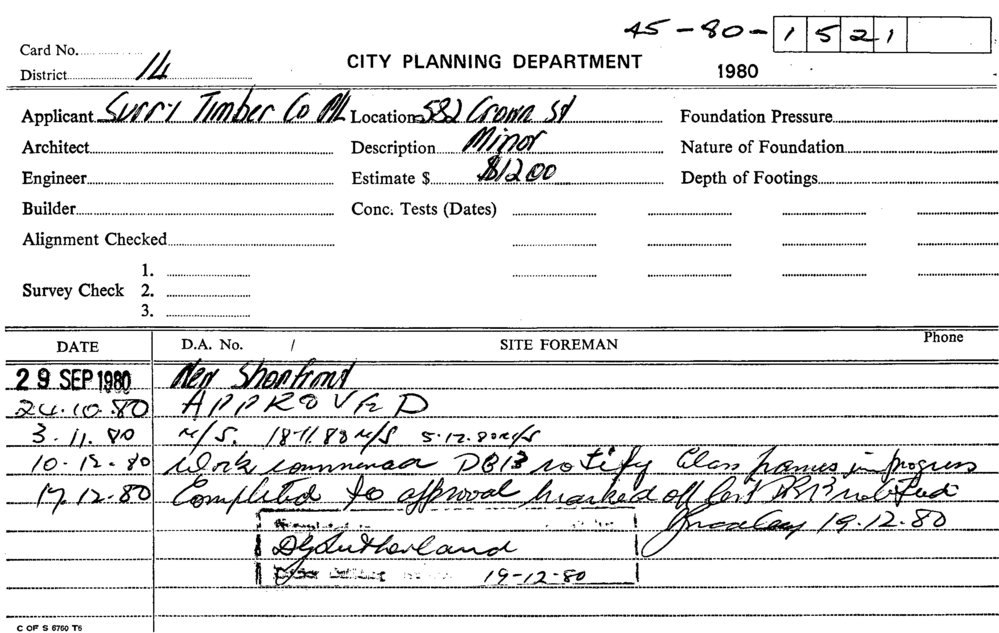 45-80-1521
Card No.
District 14
CITY PLANNING DEPARTMENT
1980
Applicant Surry Timber Co P/L Location 582 Crown St Foundation Pressure
Architect Description Minor Nature of Foundation
Engineer Estimate $ $1200 Depth of Footings
Builder Conc. Tests (Dates)
Alignment Checked
1.
Survey Check 2.
3.
DATE D.A. No. / SITE FOREMAN Phone
29 SEP 1980 New Shopfront
24.10.80 APPROVED
3.11.80 N/S. 18-11.80 N/S 5.12.80 N/S
10-12-80 Work commenced DB13 notify Glass frames in progress
17.12.80 Completed to approval marked off DB13 notified
19.12.80
DGSutherland
19-12-80
C OF S 6760 T6